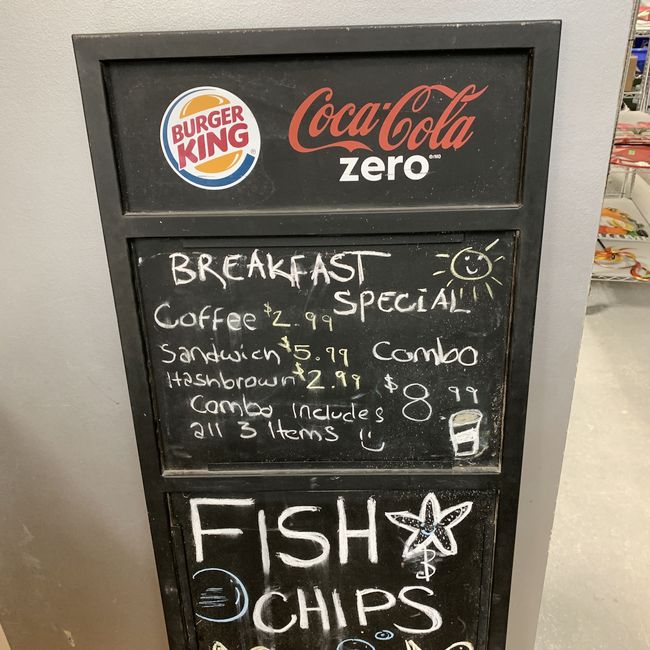 BURGER
KING
Coca-Cola
zero
BREAKFAST
SPECIAL
Coffee $2.99
Sandwich $5.99
Hashbrown $2.99
Combo
$8.99
Combo includes
all 3 items
FISH
&
CHIPS